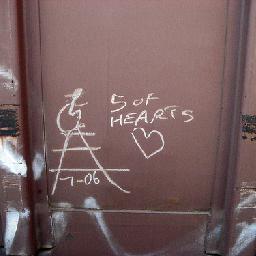 5 OF
HEARTS
7-06